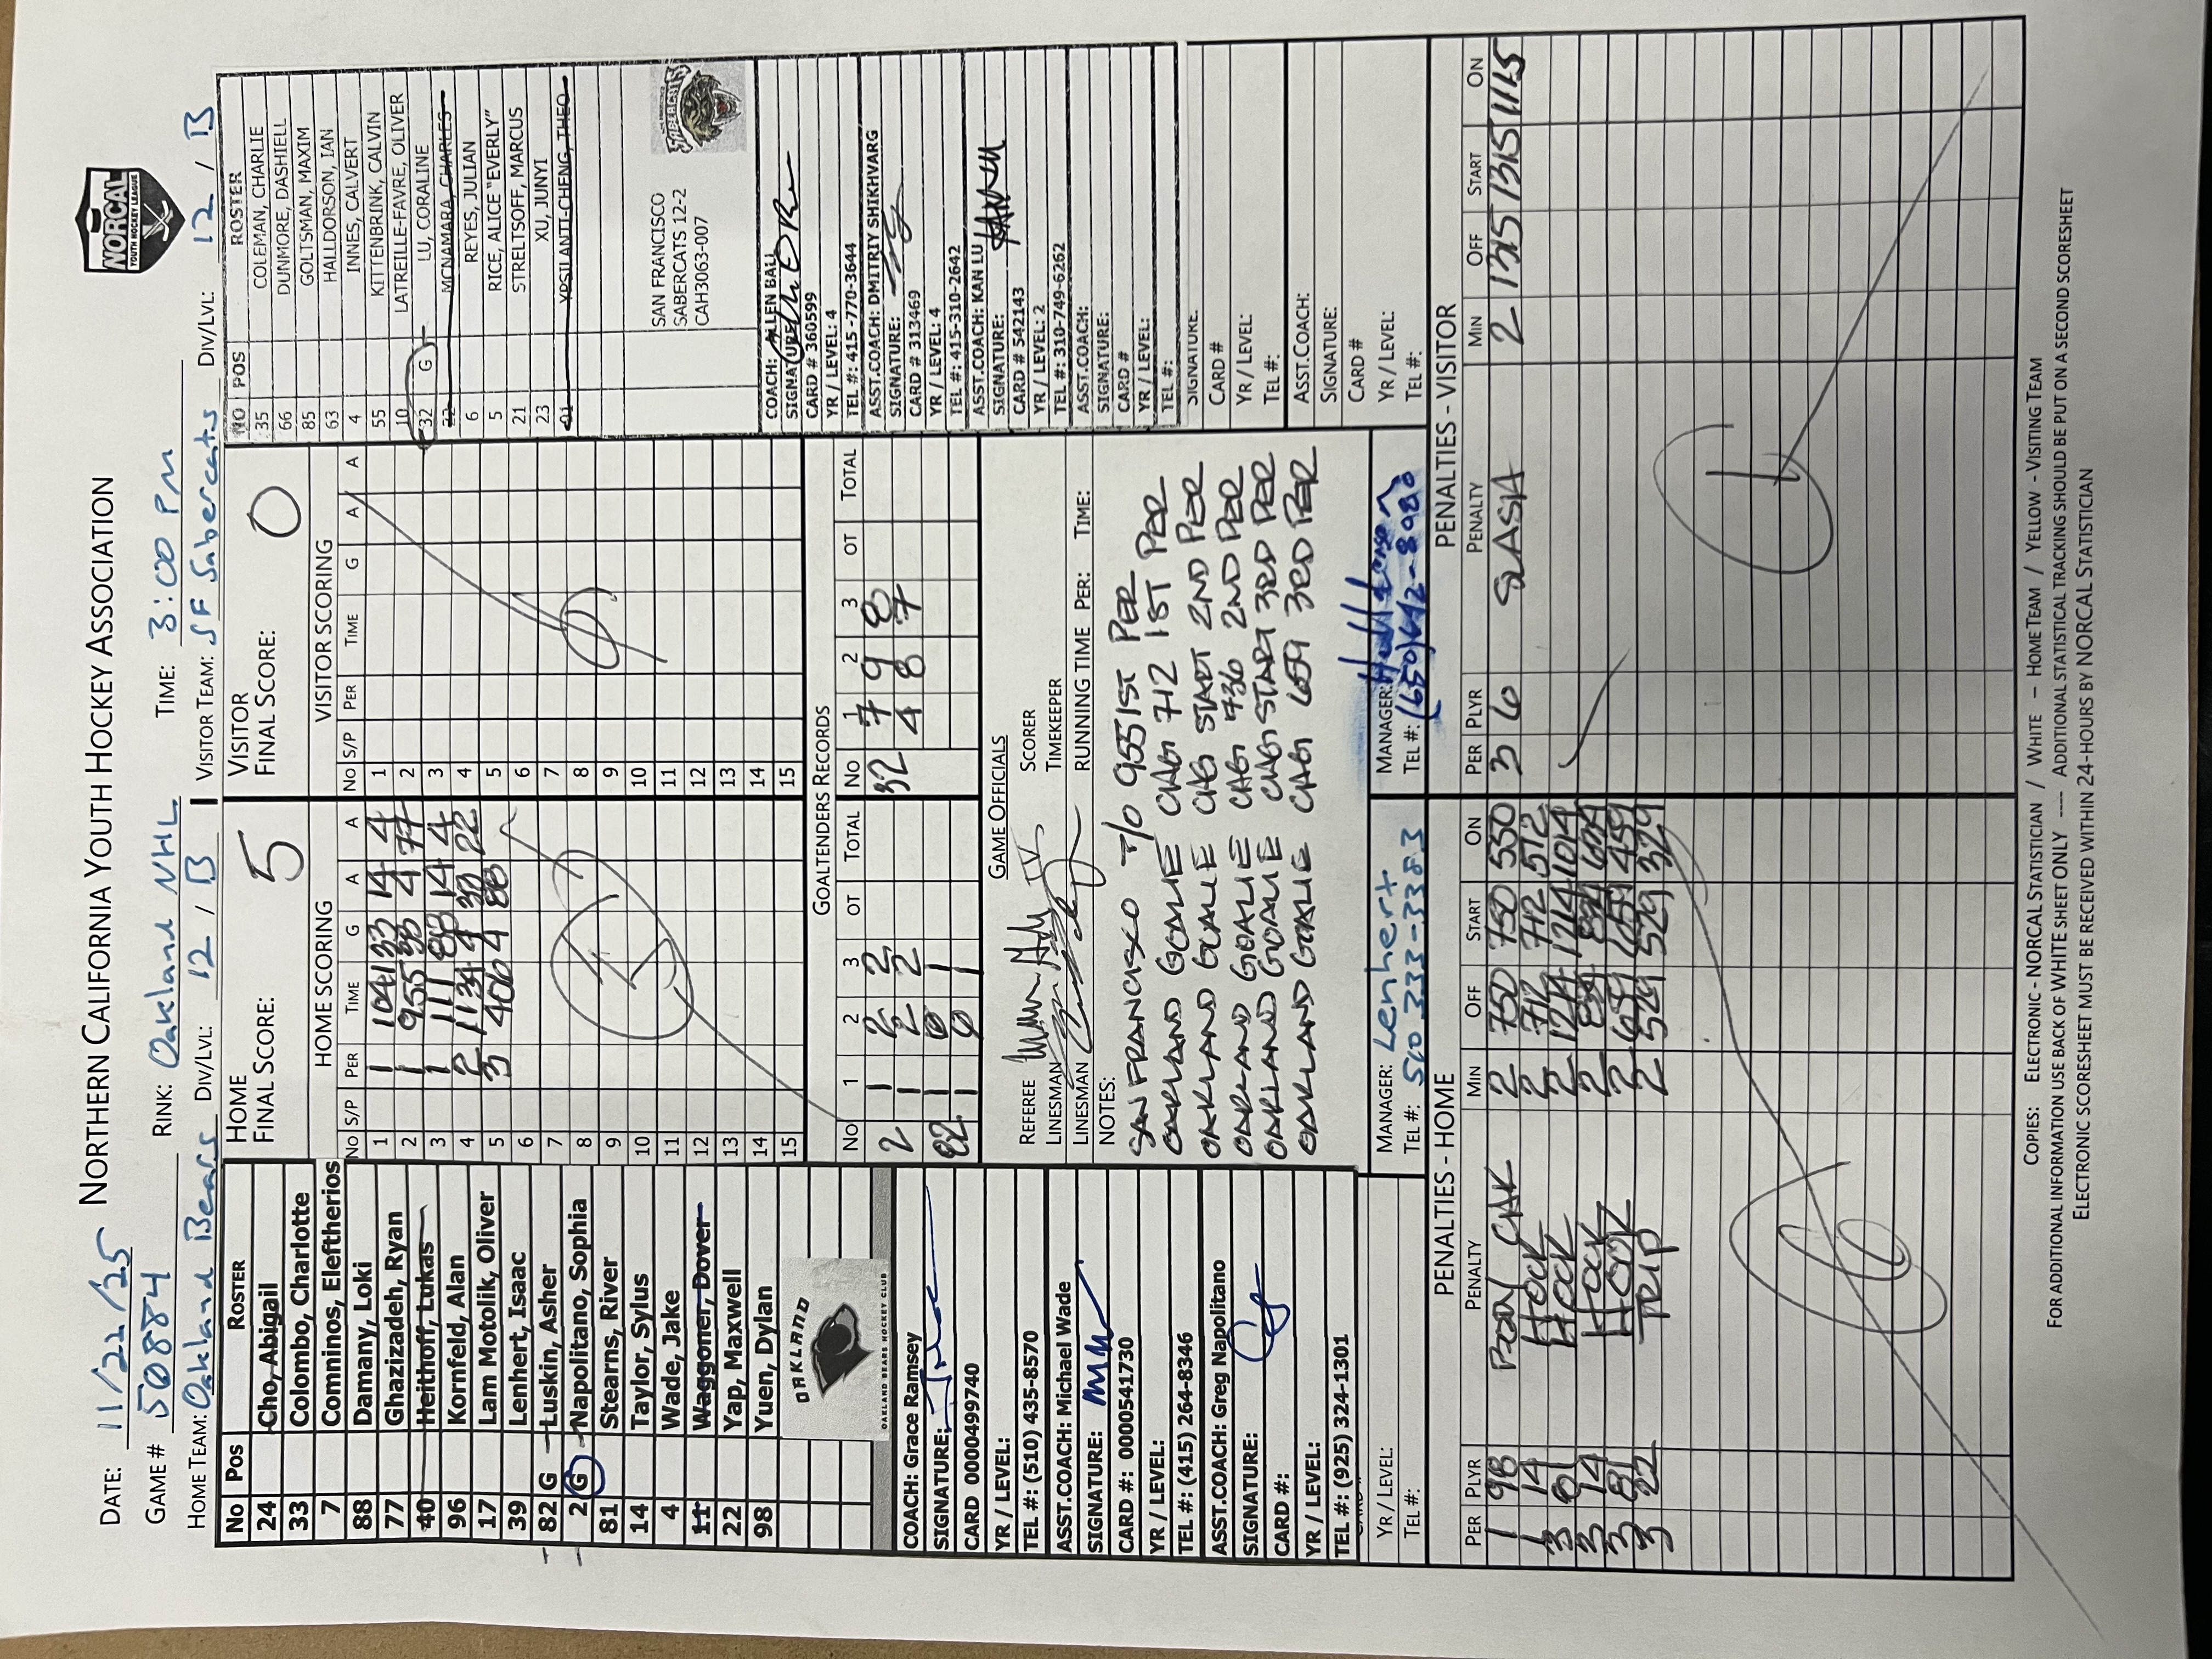 NORTHERN CALIFORNIA YOUTH HOCKEY ASSOCIATION
NORCAL
YOUTH HOCKEY LEAGUE
DATE: 11/22/25
GAME # 50884 RINK: Oakland NHL TIME: 3:00 PM
HOME TEAM: Oakland Bears DIV/LVL: 12 / B VISITOR TEAM: SF Sabercats DIV/LVL: 12 / B
No Pos ROSTER
24 Cho, Abigail
33 Colombo, Charlotte
7 Comninos, Eleftherios
88 Damany, Loki
77 Ghazizadeh, Ryan
40 Heithoff, Lukas
96 Kornfeld, Alan
17 Lam Motolik, Oliver
39 Lenhert, Isaac
82 G Luskin, Asher
2 G Napolitano, Sophia
81 Stearns, River
14 Taylor, Sylus
4 Wade, Jake
11 Waggoner, Dover
22 Yap, Maxwell
98 Yuen, Dylan
OAKLAND
OAKLAND BEARS HOCKEY CLUB
COACH: Grace Ramsey
SIGNATURE:
CARD 0000499740
YR / LEVEL:
TEL #: (510) 435-8570
ASST.COACH: Michael Wade
SIGNATURE:
CARD #: 0000541730
YR / LEVEL:
TEL #: (415) 264-8346
ASST.COACH: Greg Napolitano
SIGNATURE:
CARD #:
YR / LEVEL:
TEL #: (925) 324-1301
YR / LEVEL:
TEL #:
HOME
FINAL SCORE: 5
HOME SCORING
No S/P PER TIME G A A
1 1 1041 33 14 4
2 1 955 4 77
3 1 111 88 14 4
4 2 1134 4 33 22
5 3 400 4 88
6
7
8
9
10
11
12
13
14
15
VISITOR
FINAL SCORE: 0
VISITOR SCORING
No S/P PER TIME G A A
1
2
3
4
5
6
7
8
9
10
11
12
13
14
15
GOALTENDERS RECORDS
No 1 2 3 OT TOTAL No 1 2 3 OT TOTAL
2 1 2 2 32 7 9 8
1 2 2 4 8 7
82 1 0 1
1 0 1
GAME OFFICIALS
REFEREE SCORER
LINESMAN TIMEKEEPER
LINESMAN RUNNING TIME PER: TIME:
NOTES:
SAN FRANCISCO T/O 955 1ST PER
OAKLAND GOALIE CHG 712 1ST PER
OAKLAND GOALIE CHG START 2ND PER
OAKLAND GOALIE CHG 736 2ND PER
OAKLAND GOALIE CHG START 3RD PER
OAKLAND GOALIE CHG 659 3RD PER
MANAGER: Lenhert
TEL #: 510 333-3383
MANAGER:
TEL #: (650)642-8980
NO POS ROSTER
35 COLEMAN, CHARLIE
66 DUNMORE, DASHIELL
85 GOLTSMAN, MAXIM
63 HALLDORSON, IAN
4 INNES, CALVERT
55 KITTENBRINK, CALVIN
10 LATREILLE-FAVRE, OLIVER
32 G LU, CORALINE
MCNAMARA, CHARLES
6 REYES, JULIAN
5 RICE, ALICE "EVERLY"
21 STRELTSOFF, MARCUS
23 XU, JUNYI
YPSILANTI-CHENG, THEO
SAN FRANCISCO
SABERCATS 12-2
CAH3063-007
SABERCATS
COACH: ALLEN BALL
SIGNATURE:
CARD # 360599
YR / LEVEL: 4
TEL #: 415-770-3644
ASST.COACH: DMITRIY SHIKHVARG
SIGNATURE:
CARD # 313469
YR / LEVEL: 4
TEL #: 415-310-2642
ASST.COACH: KAN LU
SIGNATURE:
CARD # 542143
YR / LEVEL: 2
TEL #: 310-749-6262
ASST.COACH:
SIGNATURE:
CARD #
YR / LEVEL:
TEL #:
SIGNATURE:
CARD #
YR / LEVEL:
TEL #:
ASST.COACH:
SIGNATURE:
CARD #
YR / LEVEL:
TEL #:
PENALTIES - HOME
PER PLYR PENALTY MIN OFF START ON
1 98 BODY CHK 2 750 750 550
14 HOOK 2 712 712 512
3 81 HOOK 2 1214 1214 1014
3 14 HOOK 2
3 81 HOOK 2 659 659 459
3 22 TRIP 2 529 529 329
PENALTIES - VISITOR
PER PLYR PENALTY MIN OFF START ON
3 6 SLASH 2 1315 1315 1115
COPIES: ELECTRONIC - NORCAL STATISTICIAN / WHITE - HOME TEAM / YELLOW - VISITING TEAM
FOR ADDITIONAL INFORMATION USE BACK OF WHITE SHEET ONLY ---- ADDITIONAL STATISTICAL TRACKING SHOULD BE PUT ON A SECOND SCORESHEET
ELECTRONIC SCORESHEET MUST BE RECEIVED WITHIN 24-HOURS BY NORCAL STATISTICIAN